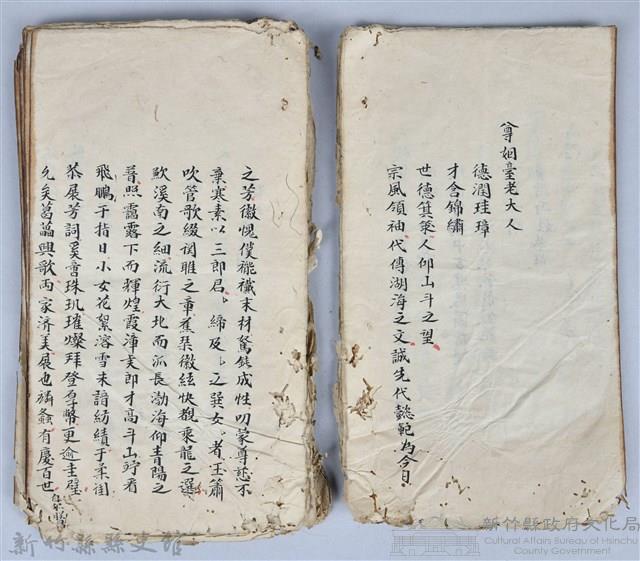 尊姻臺老大人
德潤珪璋
才含錦繡
世德箕裘人仰山斗之望
宗風領袖代傳湖海之文誠先代懿範為今日
之芳徽愧僕襪襶末材駑鈍成性叨蒙尊慈不
棄寒素以三郎君締及之巽女者玉簫
吹管歌綴関雎之章蕉琹徽絃快覩乘龍之選
歐溪南之細流衍大北而派長渤海仰青陽之
普照靄露下而輝煌霞漳美郎才高斗山竚看
飛鵬于指日小女花絮溶雪未諳紡績于柔閨
恭展芳詞奚啻珠玑璀燦拜登厚幣更逾圭璧
允矣葛藟興歌兩家济美展也螽有慶百世
新竹縣縣史館
新竹縣政府文化局
Cultural Affairs Bureau of Hsinchu
County Government